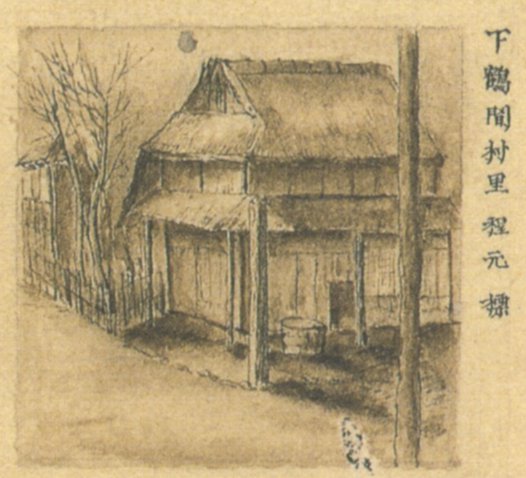 下鶴間村里程元標